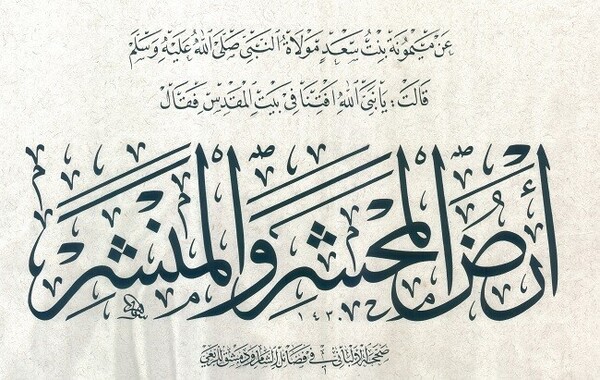 عَنْ مَيْمُونَةَ بِنْتِ سَعْدٍ مَوْلَاةِ النَّبِيِّ صَلَّى اللهُ عَلَيْهِ وَسَلَّمَ
قَالَتْ: يَا نَبِيَّ اللهِ افْتِنَا فِي بَيْتِ الْمَقْدِسِ فَقَالَ
أَرْضُ الْمَحْشَرِ وَالْمَنْشَرِ
١٤٣٠
صححه الألباني في فضائل الشام ودمشق للربعي